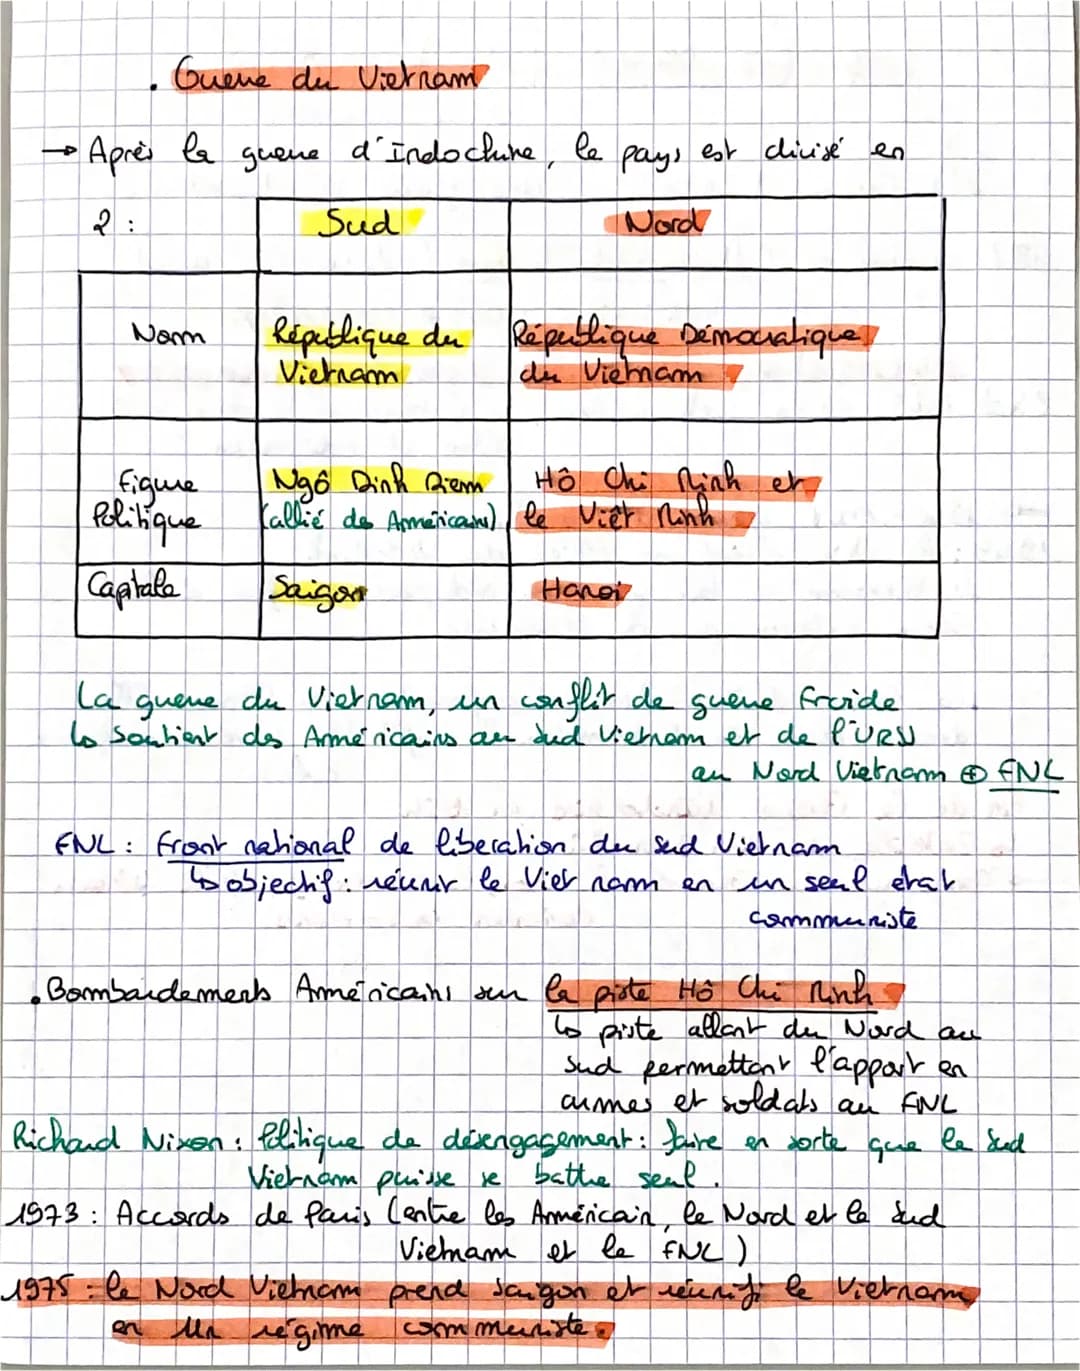 . Guerre du Vietnam
→ Après la guerre d'Indochine, le pays est divisé en
2 : Sud Nord
Nom République du Vietnam République Démocratique du Vietnam
Figure Politique Ngô Dinh Diem (allié des Américains) Hô Chi Minh et le Việt Minh
Capitale Saigon Hanoi
La guerre du Vietnam, un conflit de guerre froide
↳ soutient des Américains au Sud Vietnam et de l'URSS
au Nord Vietnam ⊕ FNL
FNL : Front national de liberation du Sud Vietnam
↳ objectif : réunir le Viet nam en un seul etat
communiste
. Bombardements Américains sur la piste Hô Chi Minh
↳ piste allant du Nord au
Sud permettant l'apport en
armes et soldats au FNL
Richard Nixon : Politique de désengagement : faire en sorte que le Sud
Vietnam puisse se battre seul.
1973 : Accords de Paris (entre les Américain, le Nord et le Sud
Vietnam et le FNL)
1975 : le Nord Vietnam prend Saigon et réunifi le Vietnam
en un régime communiste.